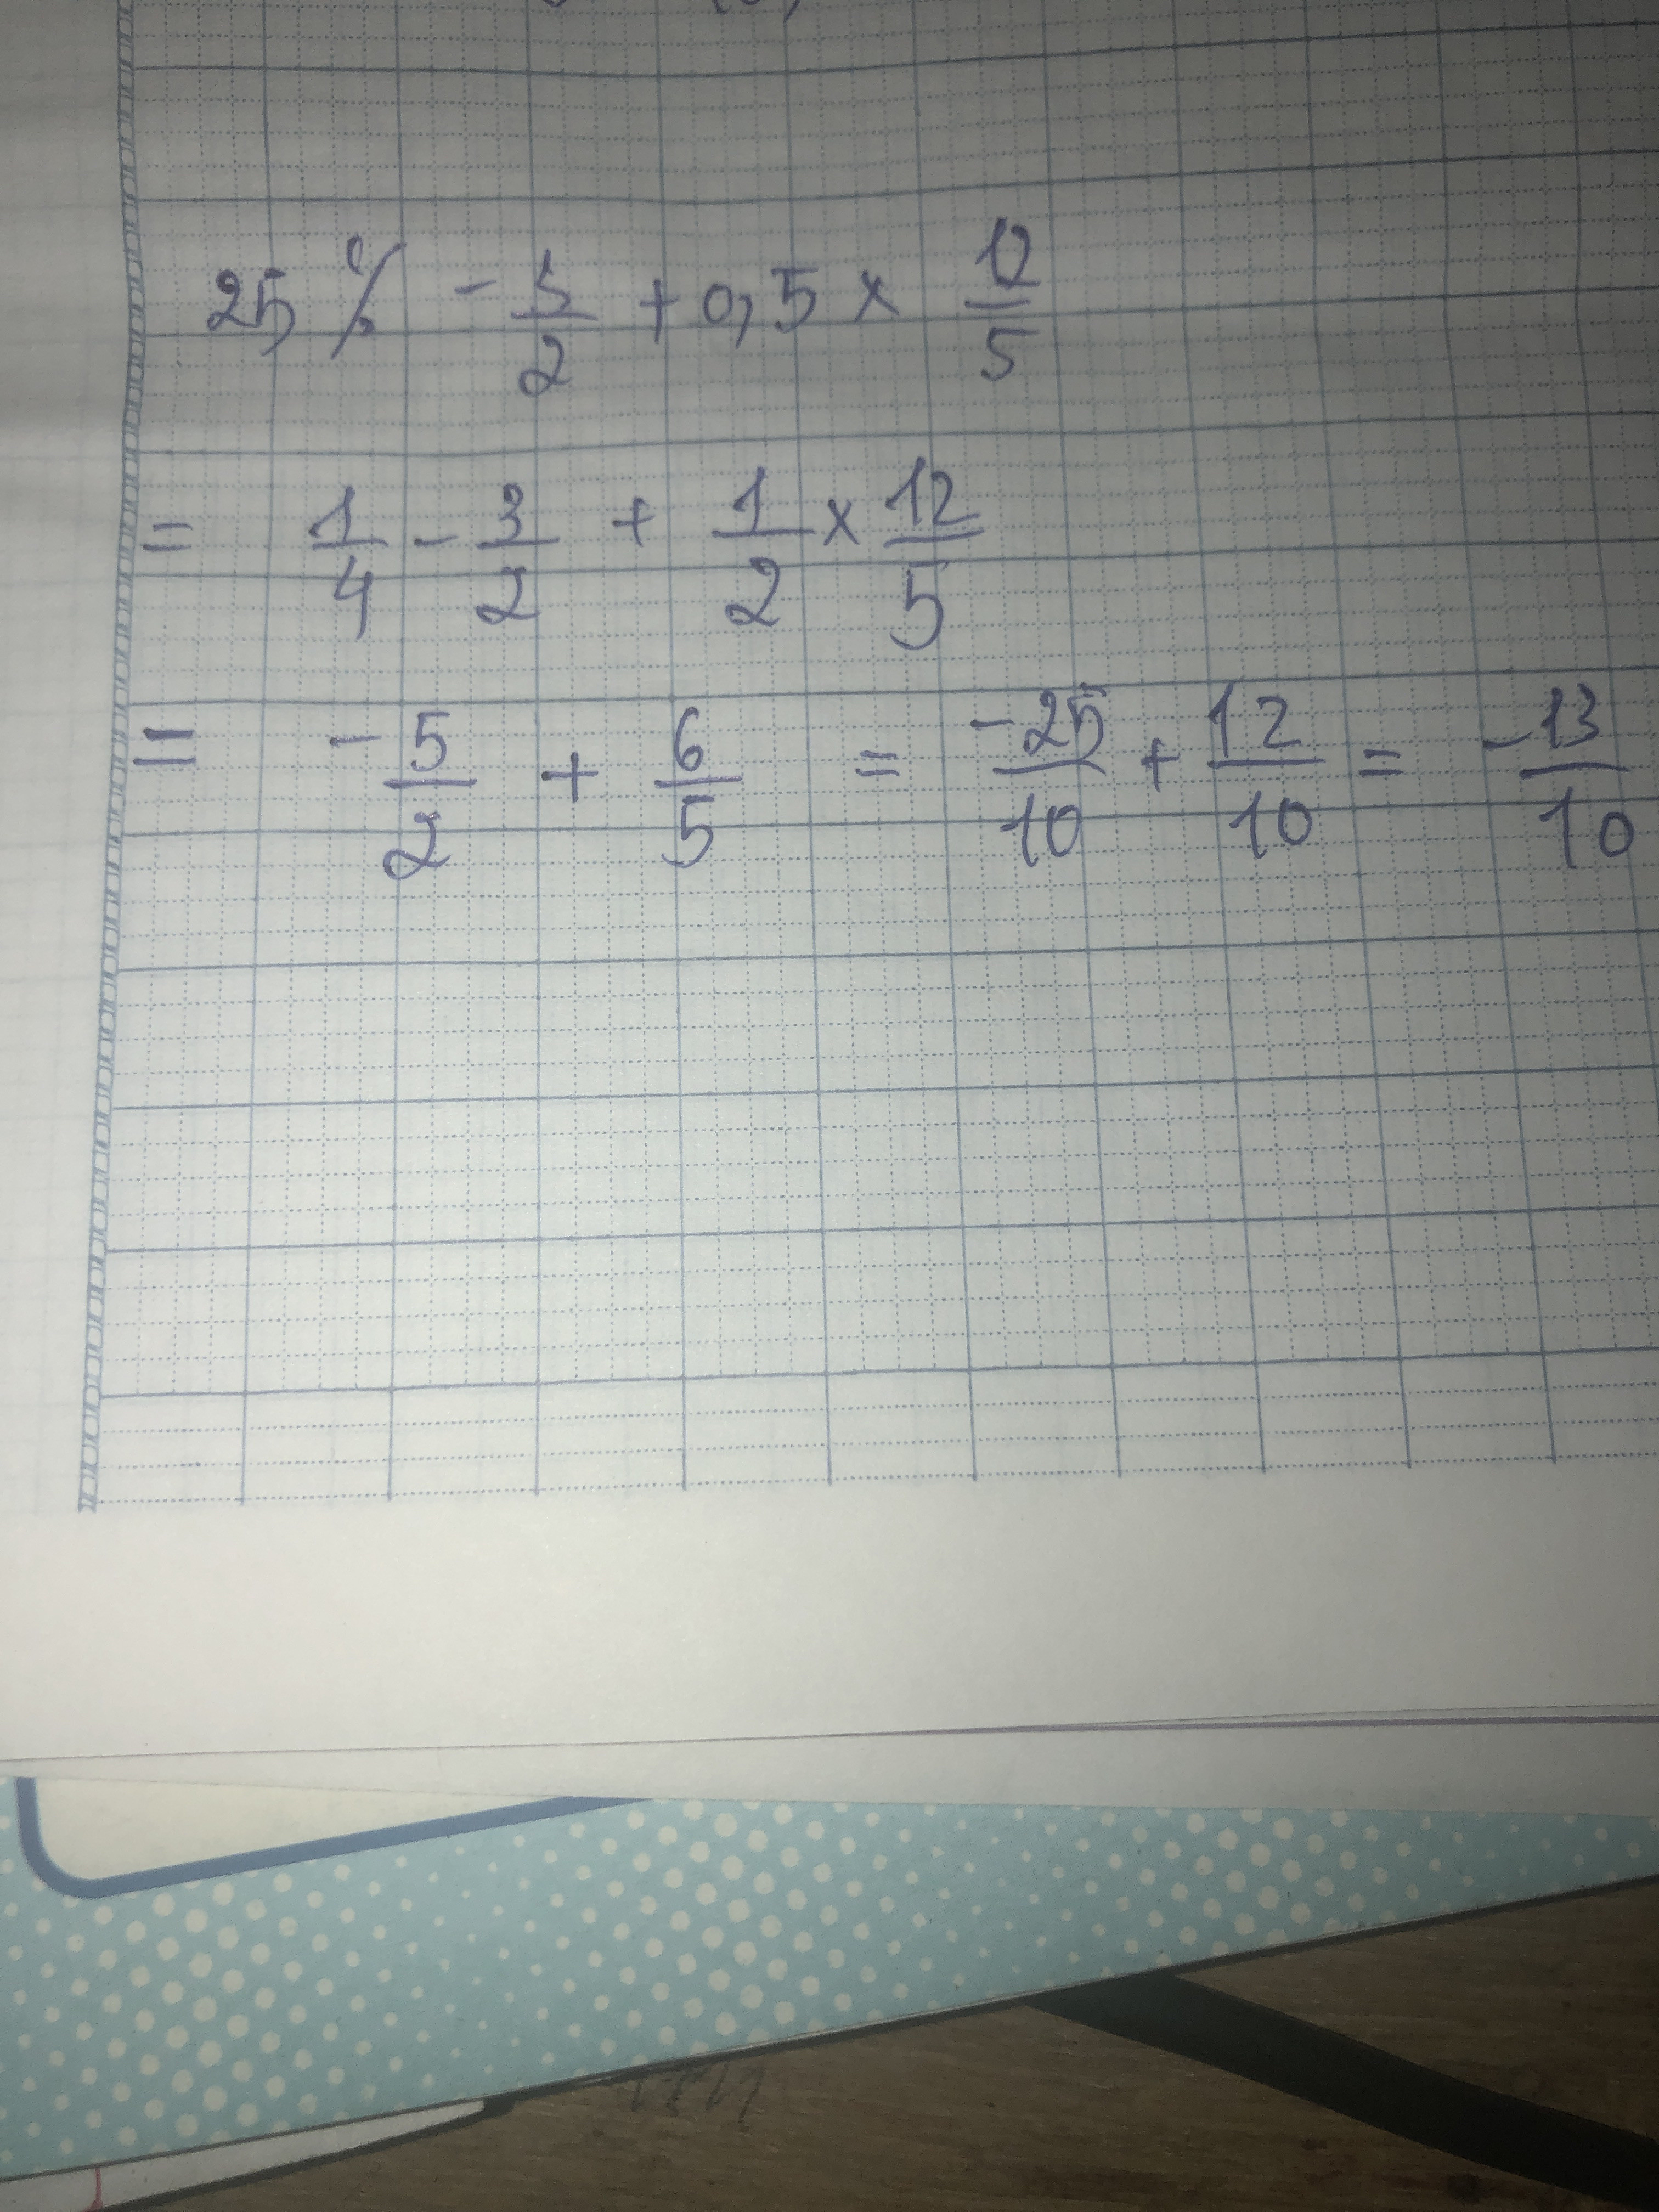 25 % - 3/2 + 0,5 × 12/5
= 1/4 - 3/2 + 1/2 × 12/5
= - 5/2 + 6/5 = -25/10 + 12/10 = -13/10